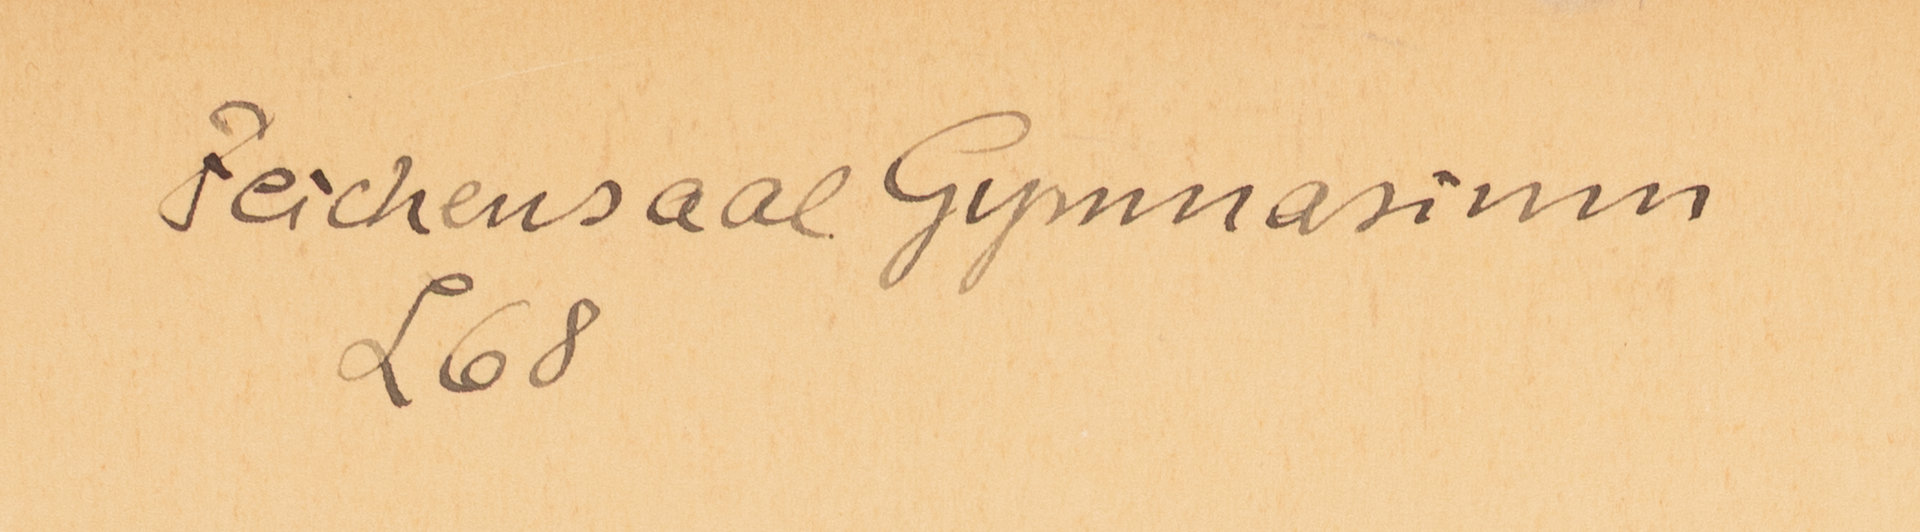 Zeichensaal Gymnasium
L68